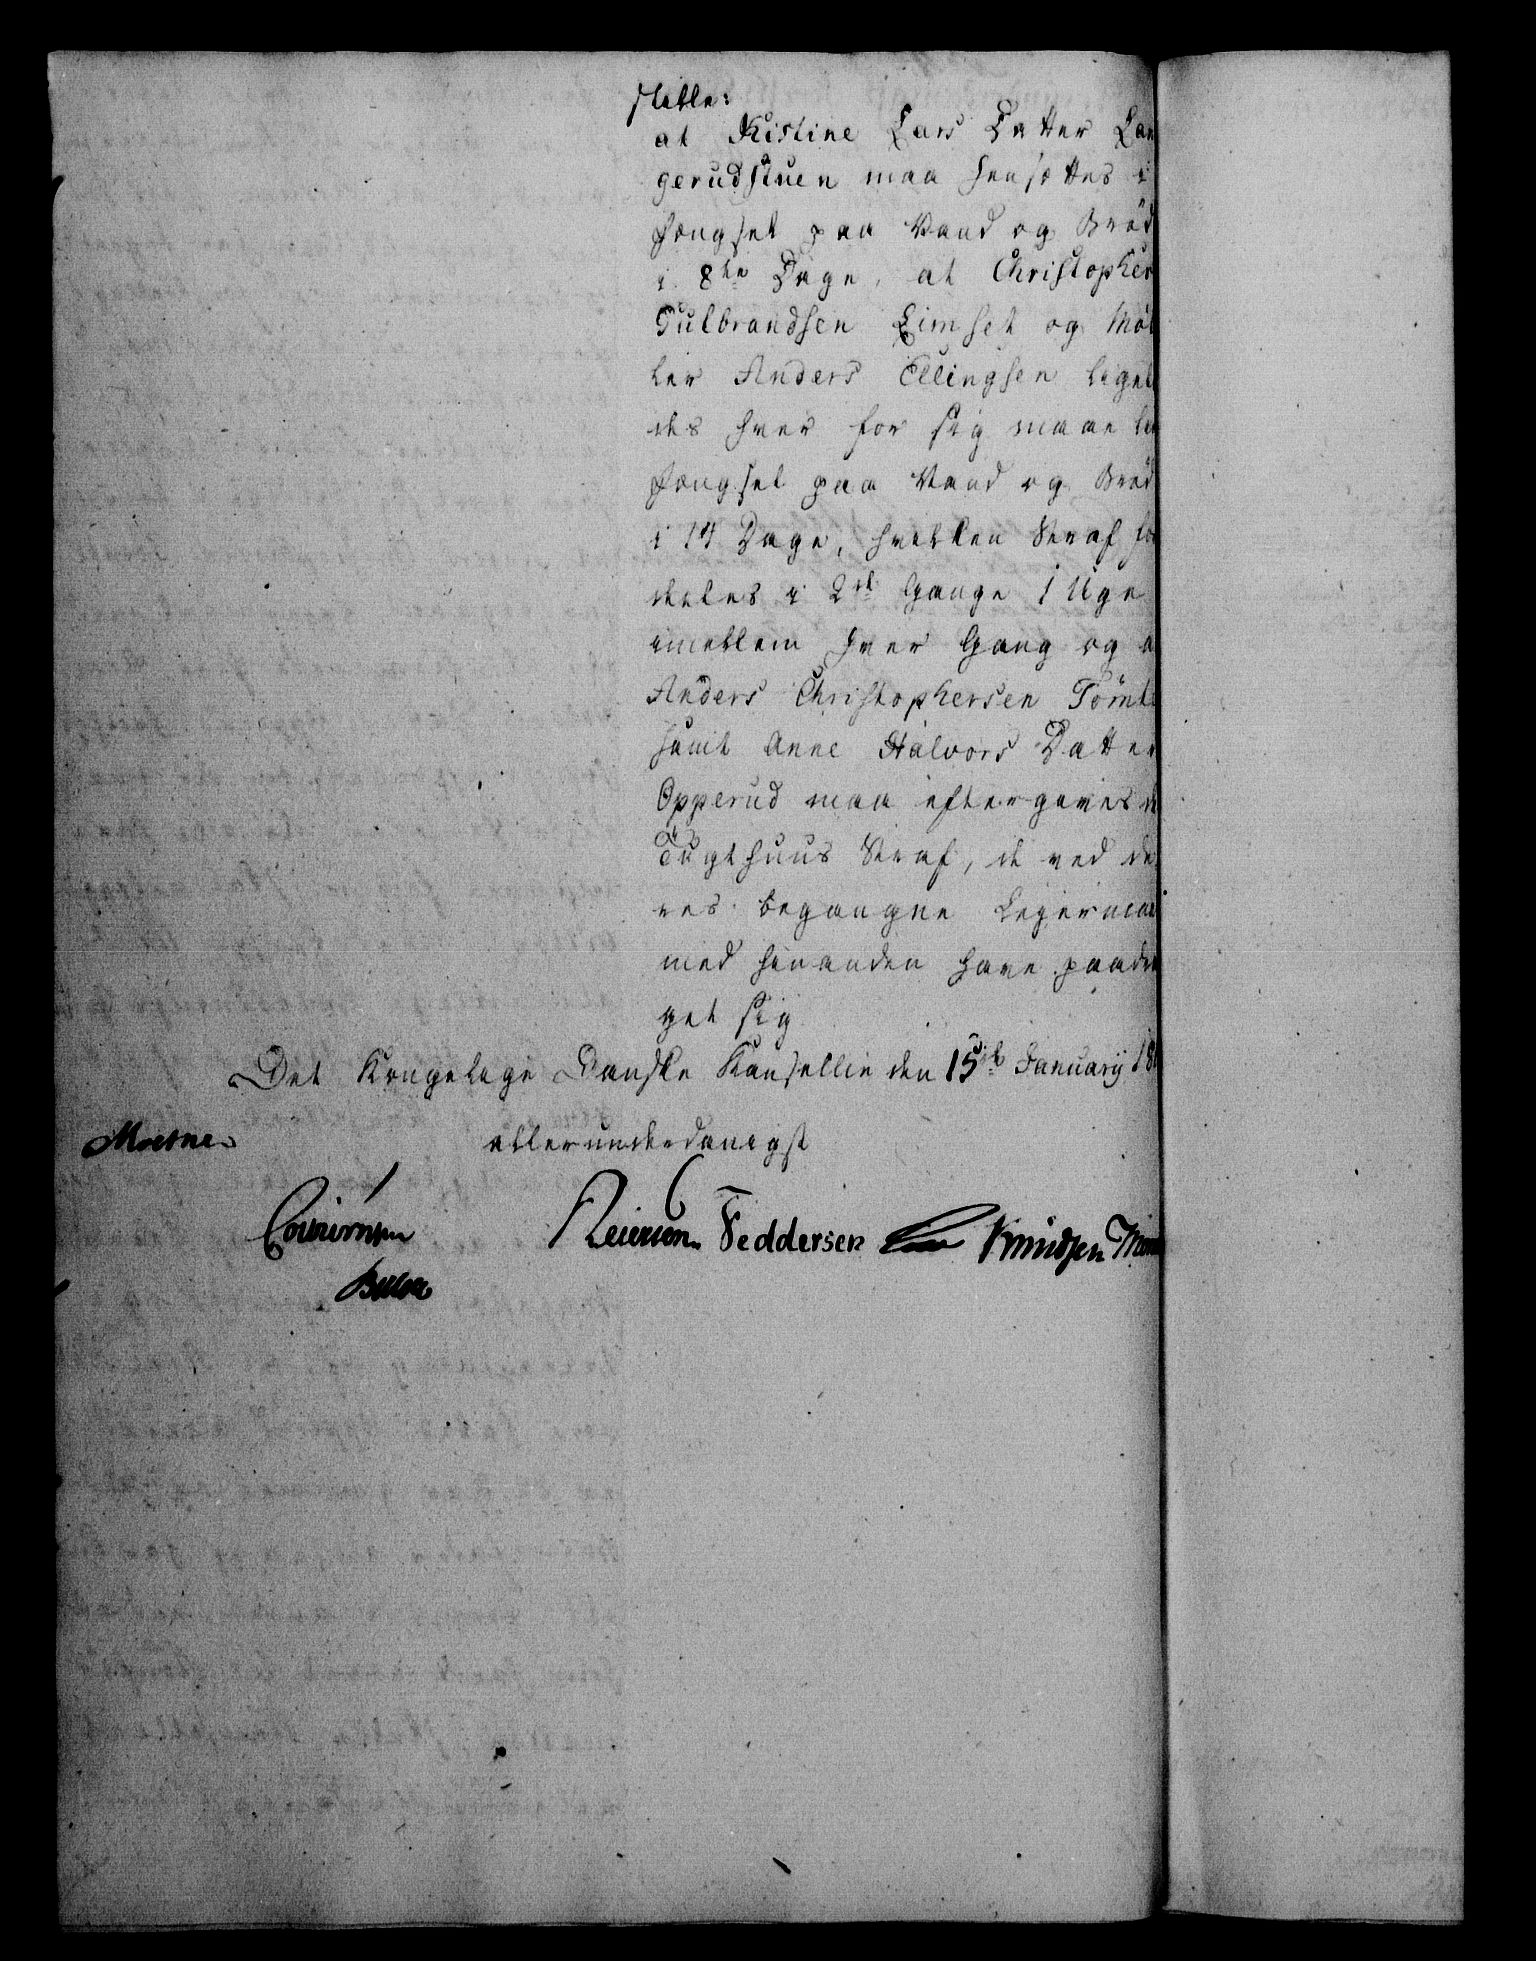 stelle:
at Kistine Lars Datter Lan
gerudstuen maa hensættes i
Fængsel paa Vand og Bröd
i 8te Dage, at Christopher
Gulbrandsen Eimset og Möl
ler Anders Ellingsen ligel
des hver for sig maae
Fængsel paa Vand og Bröd
i 14 Dage, hvilken Straf for
deeles i 2de Gange 1 Uge
imellem hver Gang og a
Anders Christophersen Tömte
samt Anne Halvors Datter
Opperud maa eftergives d
Tugthuus Straf, de ved de
res begangne Leiermaal
med hinanden have paadra
get sig
Det Kongelige Danske Kancellie den 15de Januarij 18
allerunderdanigst
Moesner
Reiersen Feddersen Knudsen
Bülow